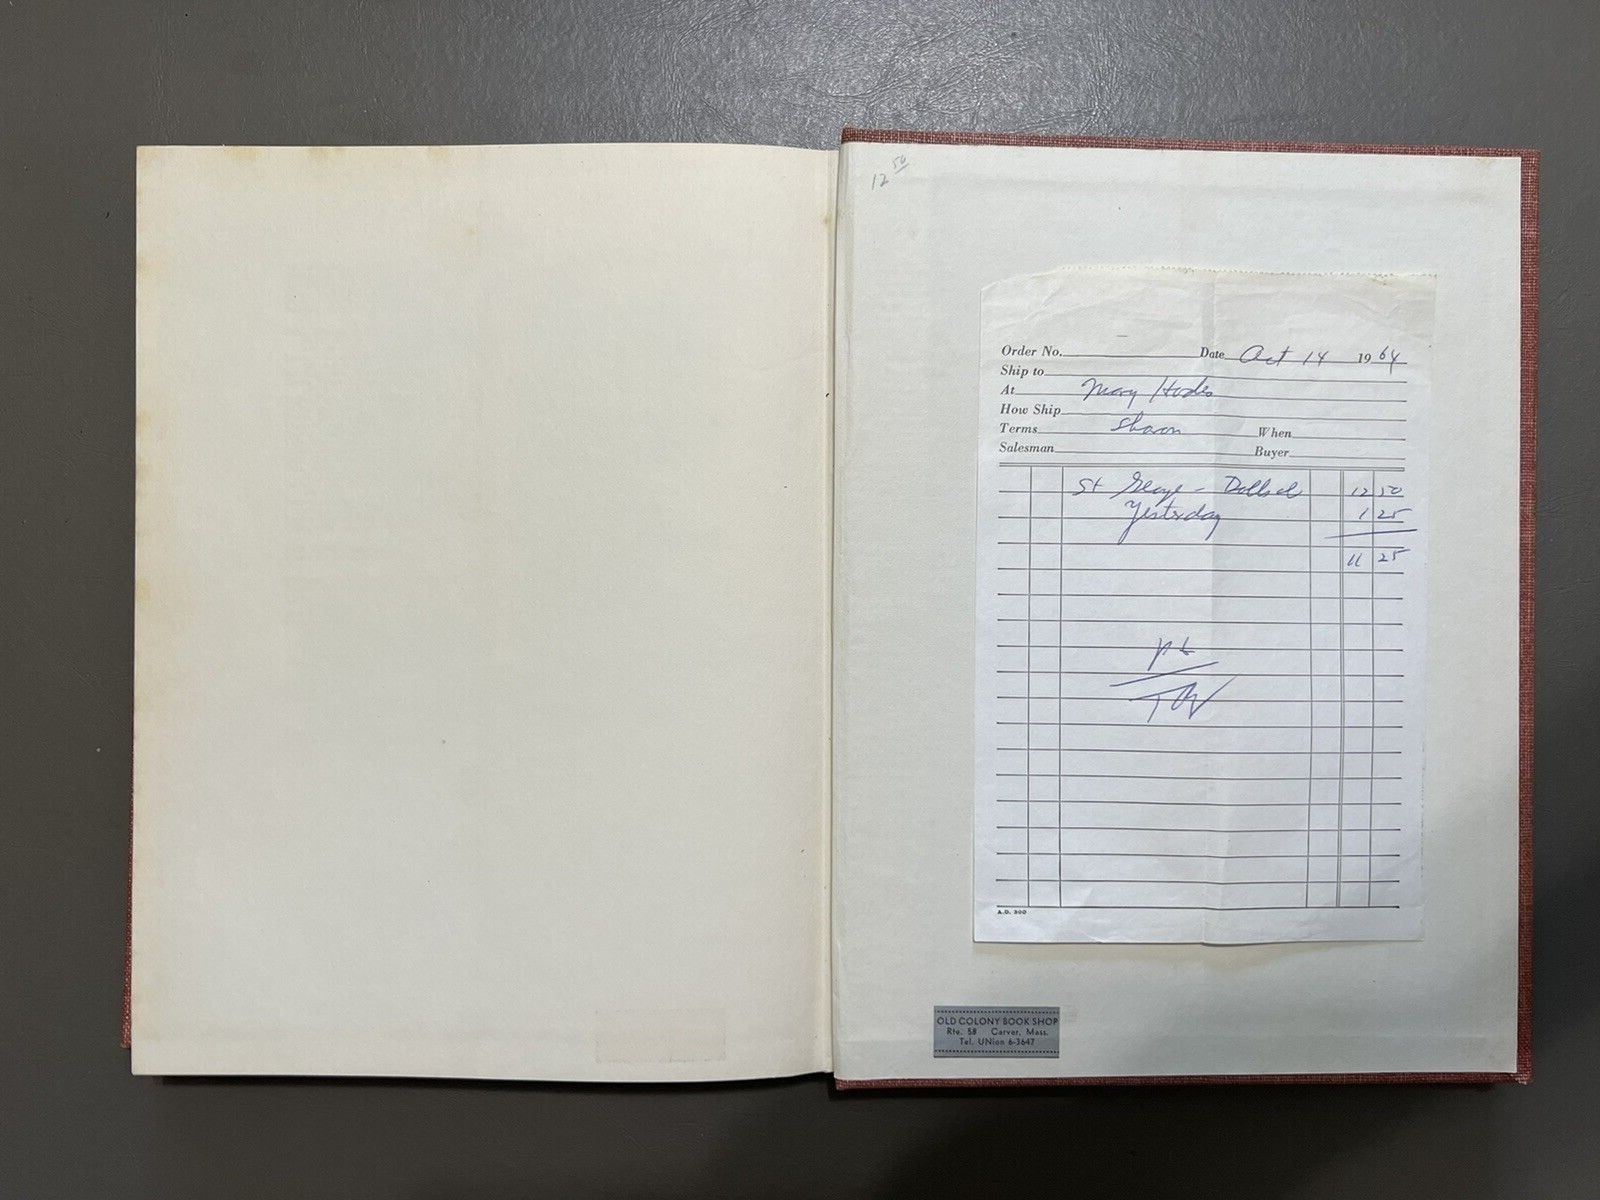 12 50
Order No. Date Oct 14 19 64
Ship to
At Mary Hodes
How Ship
Terms Sharon When
Salesman Buyer
St George - 12 50
Yesterday 1 25
11 25
A.D. 300
OLD COLONY BOOK SHOP
Rte. 58 Carver, Mass.
Tel. UNion 6-3647